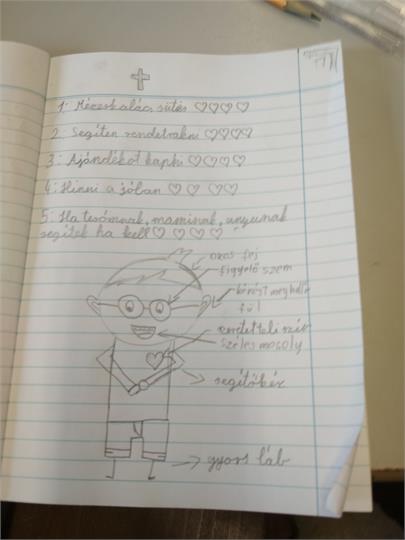 1: Mézeskalács, sütés ♡♡♡♡
2: Segíten rendetrakni ♡♡♡♡
3: Ajándékot kapni ♡♡♡♡
4: Hinni a jóban ♡♡♡♡
5: Ha tesómnak, maminak, anyunak
segítek ha kell ♡♡♡♡
okos fej
figyelő szem
kérést meghalló
fül
szeretetteli szív
széles mosoly
segítőkéz
gyors láb